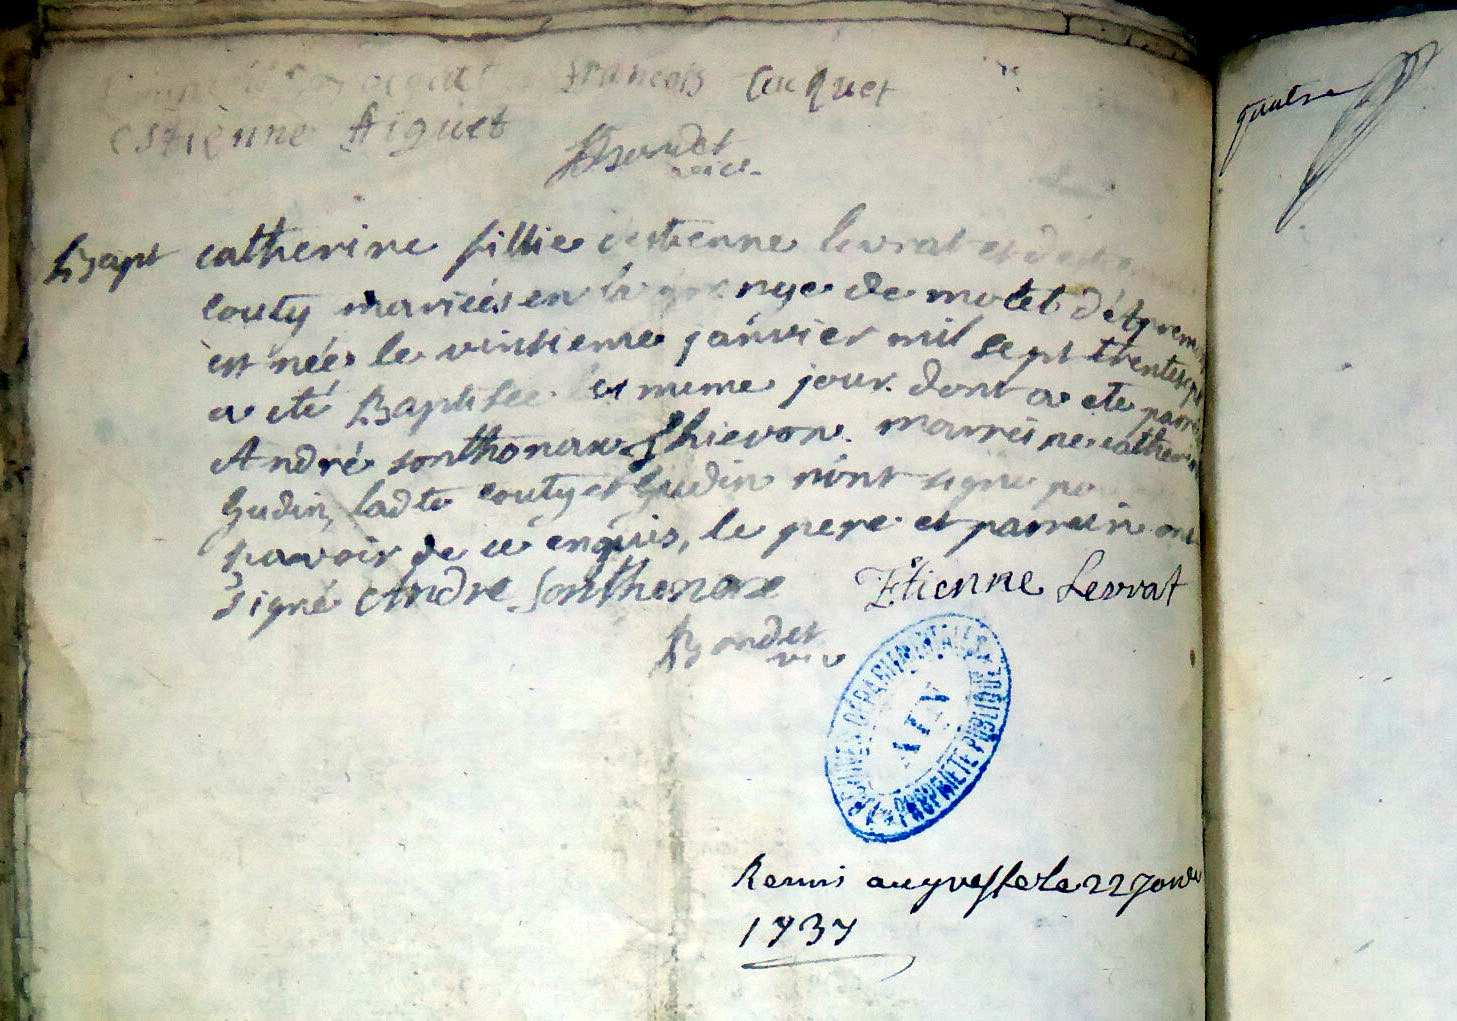 françois Cucquet
estienne Aiguet
Bondet
vic.
Bapt catherine fillie destienne levrat et
couty mariés en la grange de motet
est née le vintieme janvier mil sept trentesept
a eté Baptisee le meme jour. dont a ete
André sonthonax marreine
Gudin, ladte couty et Gudin n'ont signe
scavoir de ce enquis, le pere et parrein ont
signé Andre Sonthonax Etienne Levrat
Bondet
vic
ARCHIVES DEPARTEMENTALES
AIN
PROPRIETE PUBLIQUE
Remis au greffe le 22
1737
quatre